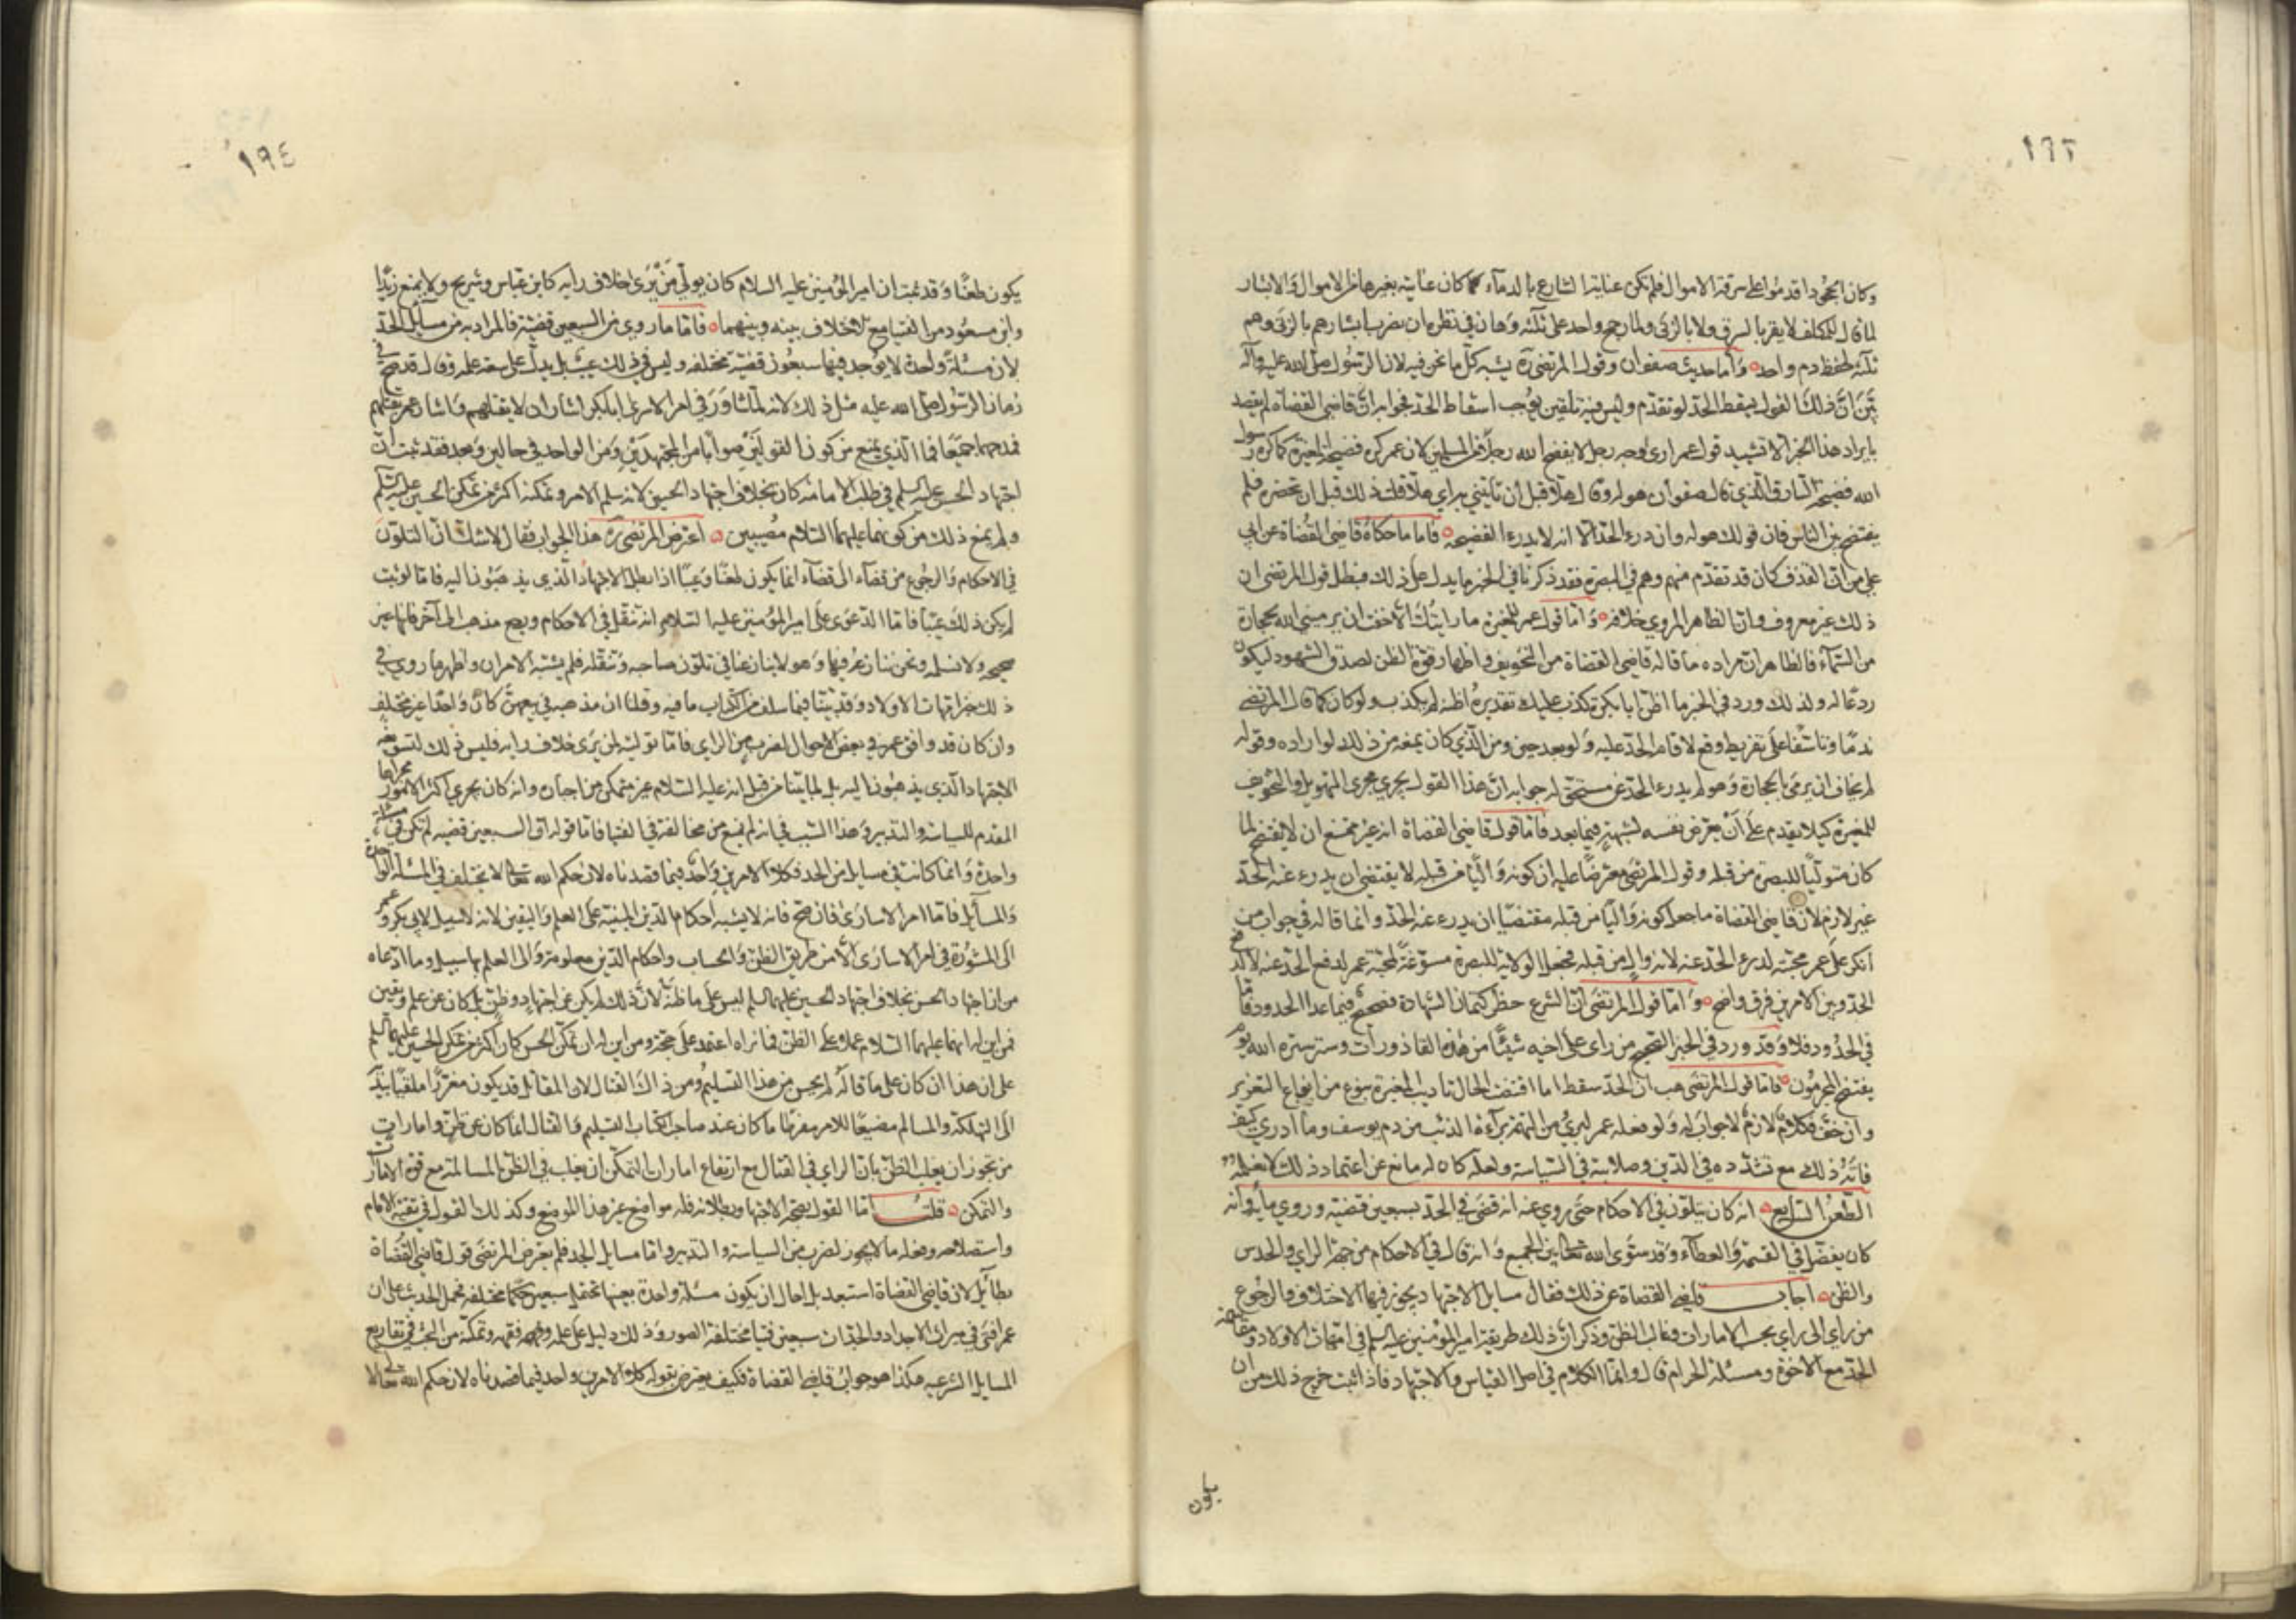 ١٦٣
وكان الجحود اقدموا على سرقة الاموال فلم تكن عناية الشارع بالدماء كما كان عنايته بغيرها من الاموال والابشار
لما قال للمكلف لا يقر بالسرق ولا بالزنى ولما رجح واحد على ثلثة وهان في نظره ان يضرب ابشارهم بالزنى وهم
ثلثة لحفظ دم واحد وأما حديث صفوان وقول المرتضى ره يشبه كل ما نحن فيه لان الرسول صلى الله عليه وآله
بين ان ذلك القول يسقط الحد لو تقدم وليس فيه تلقين يوجب اسقاط الحد فجوابه ان قاضي القضاة لم يقصد
بايراد هذا الخبر الا تشييد قول عمر ارى وجه رجل لا يفضح الله رجلا من المسلمين لان عمر كره فضيحة المغيرة كما كره رسول
الله فضيحة السارق الذي قال صفوان هو له وقال هلا قبل أن تأتيني به اي هلا قلت ذلك قبل ان تحضره فلم
يفتضح بين الناس فان قولك هو له وان درء الحد الا انه لا يدرء الفضيحة فاما ما حكاه قاضي القضاة عن ابي
علي من ان القذف كان قد تقدم منهم وهم في البصرة فقد ذكرنا في الخبر ما يدل على ذلك فبطل قول المرتضى ان
ذلك غير معروف وان الظاهر المروي خلافه وأما قول عمر للمغيرة ما رايتك الا خفت ان يرميني الله بحجارة
من السماء فالظاهر ان مراده ما قاله قاضي القضاة من التخويف واظهار قوة الظن لصدق الشهود ليكون
ردعا له ولذلك ورد في الخبر ما اظن ابا بكرة كذب عليك تقديره اظنه لم يكذب ولو كان كما قال المرتضى
ندما وتأسفا على تفريط وقع لاقام الحد عليه ولو بعد حين ومن الذي كان يمنعه من ذلك لو اراده وقوله
لم يخاف ان يرمى بالحجارة وهو لم يدرء الحد عن مستحق له جوابه ان هذا القول يجري مجرى التهويل والتخويف
للمغيرة كيلا يقدم على أن يعرض نفسه لشبهة فيما بعد فاما قول قاضي القضاة انه غير ممتنع ان لا يفتضح لما
كان متوليا للبصرة من قبله وقول المرتضى معترضا عليه ان كونه واليا من قبله لا يقتضي ان يدرء عنه الحد
غير لازم لان قاضي القضاة ما جعل كونه واليا من قبله مقتضيا ان يدرء عنه الحد وانما قاله في جواب من
انكر على عمر محبته لدرء الحد عنه لانه وال من قبله فجعل الولاية للبصرة مسوغة لمحبة عمر لدفع الحد عنه لا لدفع
الحد وبين الامرين فرق واضح وأما قول المرتضى ان الشرع حظر كتمان الشهادة فصحيح فيما عدا الحدود فاما
في الحدود فلا وقد ورد في الخبر الصحيح من راى على اخيه شيئا من هذه القاذورات وستر ستره الله يوم
يفتضح المجرمون فاما قول المرتضى هب ان الحد سقط اما اقتضت الحال تاديب المغيرة بنوع من انواع التعزير
وان خف فكلام لازم لا جواب له ولو فعله عمر لبرئ من التهمة براءة الذئب من دم يوسف وما ادري كيف
فاته ذلك مع تشدده في الدين وصلابته في السياسة ولعله كان له مانع عن اعتماد ذلك لا نعلمه
الطعن السابع انه كان يتلون في الاحكام حتى روي عنه انه قضى في الحد بسبعين قضية وروي مائة وانه
كان يفضل في القسمة والعطاء وقد سوى الله تعالى بين الجميع وانه قال في الاحكام من جهة الراي والحدس
والظن اجاب قاضي القضاة عن ذلك فقال مسايل الاجتهاد يجوز فيها الاختلاف والرجوع
من راي الى راي بحسب الامارات وغالب الظن وذكر ان ذلك طريقة امير المؤمنين عليه السلم في امهات الاولاد ومقاسمة
الجد مع الاخوة ومسئلة الحرام قال وانما الكلام في اصل القياس والاجتهاد فاذا ثبت خرج ذلك من ان
يكون
١٩٤
يكون طعنا وقد ثبت ان امير المؤمنين عليه السلام كان يولي من يرى خلاف رايه كابن عباس وشريح ولا يمنع زيدا
وابن مسعود من الفتيا مع الاختلاف بينه وبينهما فاما ما روي من السبعين قضية فالمراد به من مسايل الجد
لان مسئلة واحدة لا يوجد فيها سبعون قضية مختلفة وليس في ذلك عيب بل يدل على سعة علمه وقال قد صح في
زمان الرسول صلى الله عليه مثل ذلك لانه لما شاور في امر الاسرى ابا بكر اشار ان لا يقتلهم واشار عمر بقتلهم
فمدحهما جميعا فما الذي يمنع من كون القولين صوابا من المجتهدين ومن الواحد في حالين وبعد فقد ثبت ان
اجتهاد الحسن عليه السلم في طلب الامامة كان بخلاف اجتهاد الحسين لانه سلم الامر وتمكنه اكثر من تمكن الحسين عليه السلم
ولم يمنع ذلك من كونهما عليهما السلام مصيبين اعترض المرتضى ره هذا الجواب فقال لا شك ان التلون
في الاحكام والرجوع من قضاء الى قضاء انما يكون طعنا وعيبا اذا بطل الاجتهاد الذي يذهبون اليه فاما لو ثبت
لم يكن ذلك عيبا فاما الدعوى على امير المؤمنين عليه السلام انه تنقل في الاحكام ورجع من مذهب الى آخر فانها غير
صحيحة ولا نسلم ونحن ننازع فيها وهو لا ينازعنا في تلون صاحبه وتنقله فلم يشتبه الامران واظهر ما روي في
ذلك خبر امهات الاولاد وقد بينا فيما سلف من الكتاب ما فيه وقلنا ان مذهبه في بيعهن كان واحدا غير مختلف
وان كان قد وافق عمر في بعض الاحوال لضرب من الراي فاما توليته لمن يرى خلاف رايه فليس ذلك لتسويغه
الاجتهاد الذي يذهبون اليه بل لما بينا من قبل انه عليه السلام غير متمكن من اختياره وانه كان يجري اكثر الامور مجراها
المقدم للسياسة والتدبير وهذا السبب في انه لم يمنع من مخالفه في الفتيا فاما قوله ان السبعين قضية لم تكن في مسئلة
واحدة وانما كانت في مسايل من الجد فكلا الامرين واحد فيما قصدناه لان حكم الله تعالى لا يختلف في المسئلة الواحدة
والمسايل فاما امر الاسارى فان صح فانه لا يشبه احكام الدين المبنية على العلم واليقين لانه لا سبيل لابي بكر وعمر
الى المشورة في امر الاسارى الا من طريق الظن والحساب واحكام الدين معلومة والى العلم بها سبيل وما ادعاه
من ان اجتهاد الحسن بخلاف اجتهاد الحسين عليهما السلم ليس على ما ظنه لان ذلك لم يكن عن اجتهاد وظن بل كان عن علم ويقين
فمن اين له انهما عليهما السلام عملا على الظن فما نراه اعتمد على حجة ومن اين له ان تمكن الحسن كان اكثر من تمكن الحسين عليهما السلم
على ان هذا ان كان على ما قاله لم يحسن من هذا التسليم ومن ذاك القتال لان المقاتل قد يكون مغررا ملقيا بيده
الى التهلكة والمسالم مضيعا للامر مفرطا واذا كان عند صاحب الكتاب التسليم والقتال انما كان عن ظن وامارات
من تجوز ان يغلب الظن بان الراي في القتال مع ارتفاع امارات التمكن ان يغلب في الظن المسالمة مع قوة الامارات
والتمكن قلت اما القول بصحة الاجتهاد وبطلانه فله مواضع غير هذا الموضع وكذلك القول في تقية الامام
واستصلاحه وفعله ما لا يجوز لضرب من السياسة والتدبير واما مسايل الجد فلم يعترض المرتضى قول قاضي القضاة
بطائل لان قاضي القضاة استبعد بل احال ان يكون مسئلة واحدة بعينها تحتمل سبعين حكما مختلفة فحمل الحديث على ان
عمر افتى في ميراث الاجداد والجدات سبعين فتيا مختلفة الصور وذلك دليل على علمه وفقهه وتمكنه من البحث في تفاريع
المسايل الشرعية هكذا هو جواب قاضي القضاة فكيف يعترض بقوله كلا الامرين واحد فيما قصدناه لان حكم الله تعالى لا